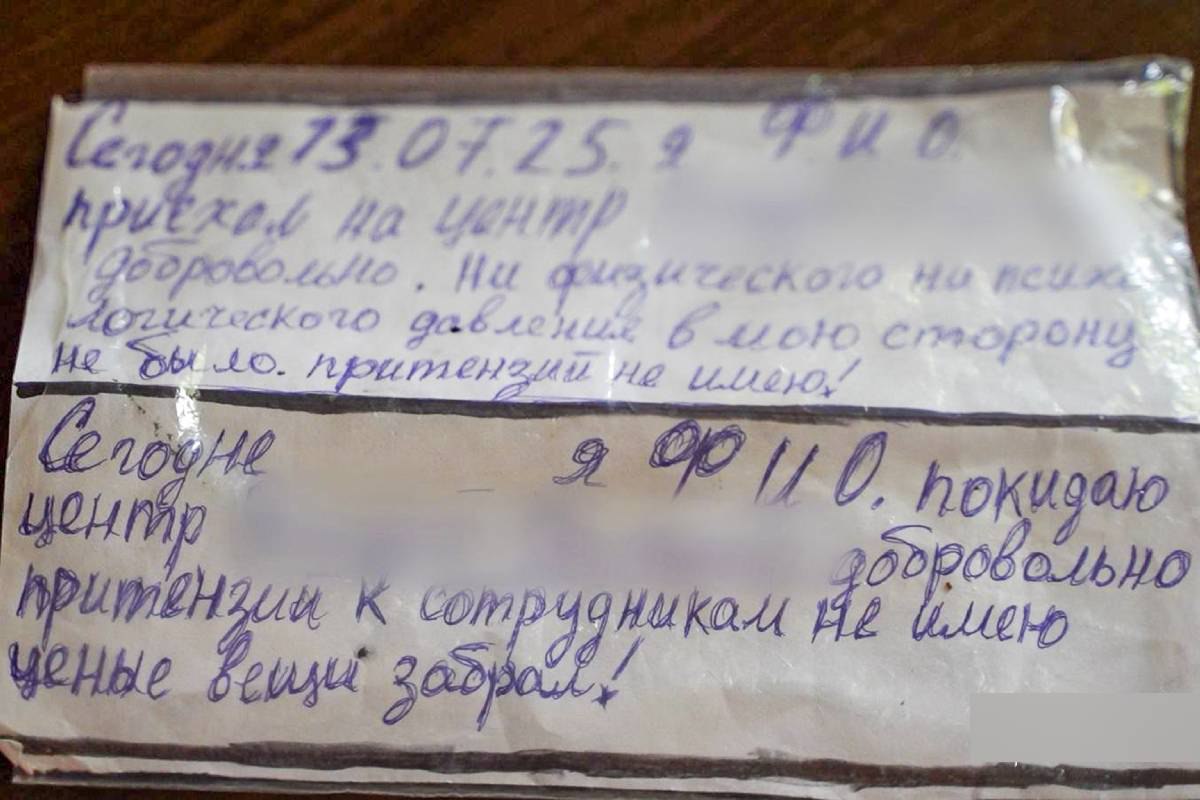 Сегодня 13.07.25. я Ф И О.
приехал на центр
добровольно. Ни физического ни психо
логического давления в мою сторону
не было. притензий не имею!
Сегодне я Ф И О. покидаю
центр
добровольно
притензии к сотрудникам не имею
ценые вещи забрал!